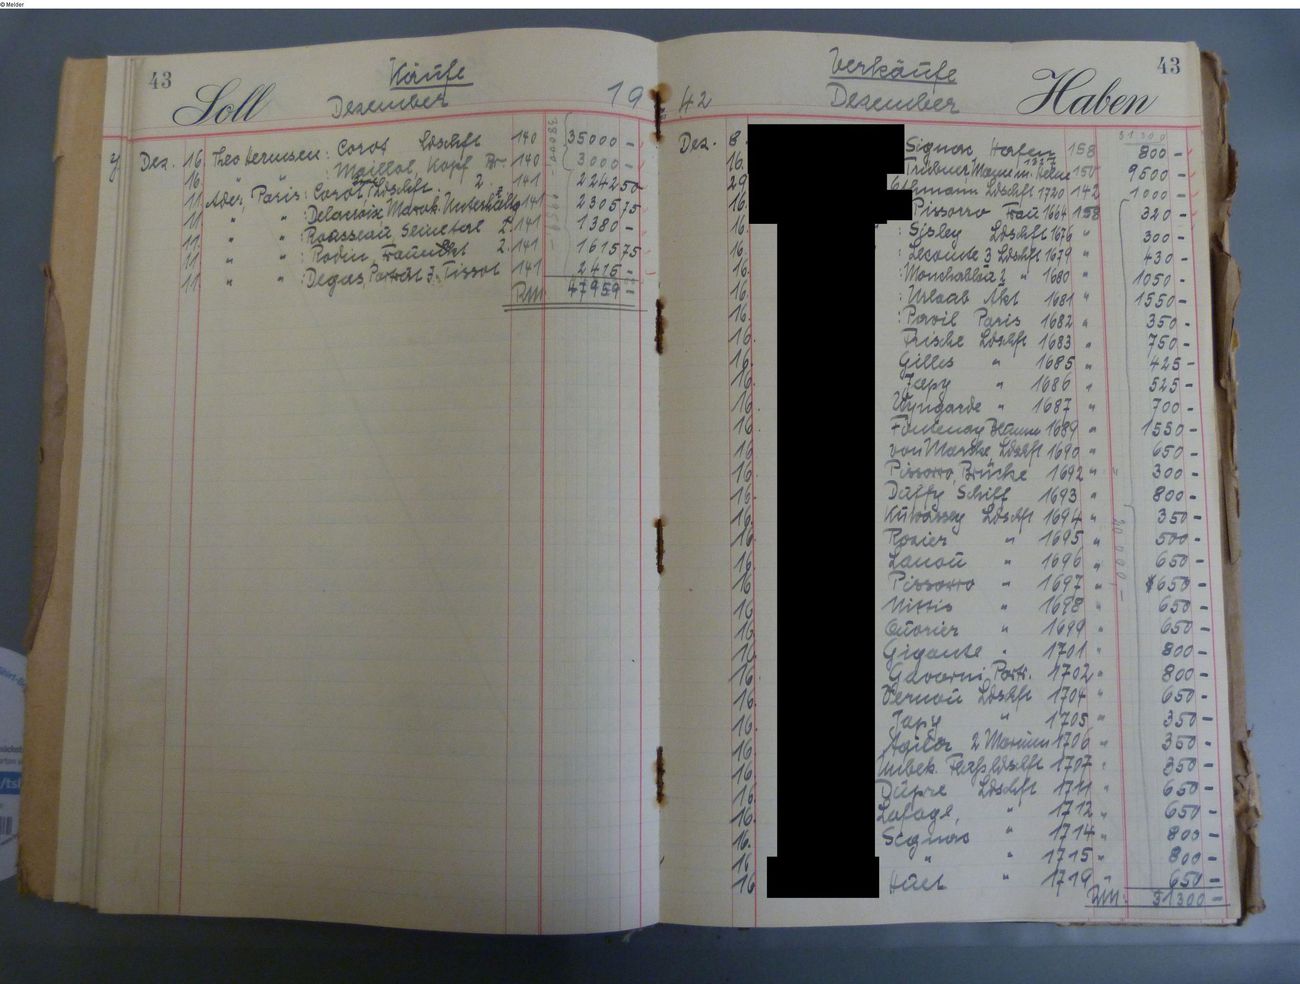 © Melder
43
Soll
Käufe
Dezember 19
Dez. 16. Theo Hermsen: Corot Ldschft 140 35000 -
16. " " : Maillol, Kopf Br. 140 3000 -
11. Ader, Paris: Corot Ldschft. 2. 141 22425 0
11. " " : Delacroix Marok. 141 2305 75
11. " " : Rousseau 2. 141 1380 -
11. " " : Rodin, 2. 141 1615 75
11. " " : Degas, Porträt J. Tissot 141 2415 -
RM. 47959 -
38000.-
42
Verkäufe
Dezember
Haben
43
31 300
Dez. 8. Signac Hafen 158 800 -
16. 150 9500 -
29. Ldschft 1720 142 1000 -
16. Pissarro Frau 1664 158 320 -
16. : Sisley Ldschft 1676 " 300 -
16. : Lecomte 3 Ldschft 1679 " 430 -
16. : Monchablon 2 " 1680 " 1050 -
16. : Urlaub Akt 1681 " 1550 -
16. : Paris 1682 " 350 -
16. Ldschft 1683 " 750 -
16. Gilles " 1685 " 425 -
16. Japy " 1686 " 525 -
16. Wyngarde " 1687 " 700 -
16. Fontenay Blumen 1689 " 1550 -
16. von Marcke, Ldschft 1690 " 650 -
16. Pissarro, Brücke 1692 " 300 -
16. Duffy Schiff 1693 " 800 -
16. Kuwassey Ldschft 1694 " 350 -
16. Rozier " 1695 " 500 -
16. Lanoü " 1696 " 650 -
16. Pissarro " 1697 " 650 -
16. Nittis " 1698 " 650 -
16. " 1699 " 650 -
16. Gigante " 1701 " 800 -
16. Gavarni Portr. 1702 " 800 -
16. Vernou Ldschft 1704 " 650 -
16. Japy " 1705 " 350 -
16. 2 Marinen 1706 " 350 -
16. Unbek. 1707 " 350 -
16. Düpre Ldschft 1711 " 650 -
16. Lafage, " 1712 " 650 -
16. Signac " 1714 " 800 -
16. " " 1715 " 800 -
16. Hüet " 1719 " 650 -
RM. 31300 -